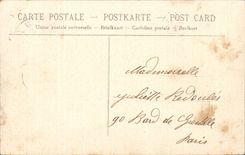 CARTE POSTALE – POSTKARTE – POST CARD
Union postale universelle – Briefkaart – Cartolina postale – Brefkort
Mademoiselle
Juliette Redoulés
90 Bard de Grenelle
Paris